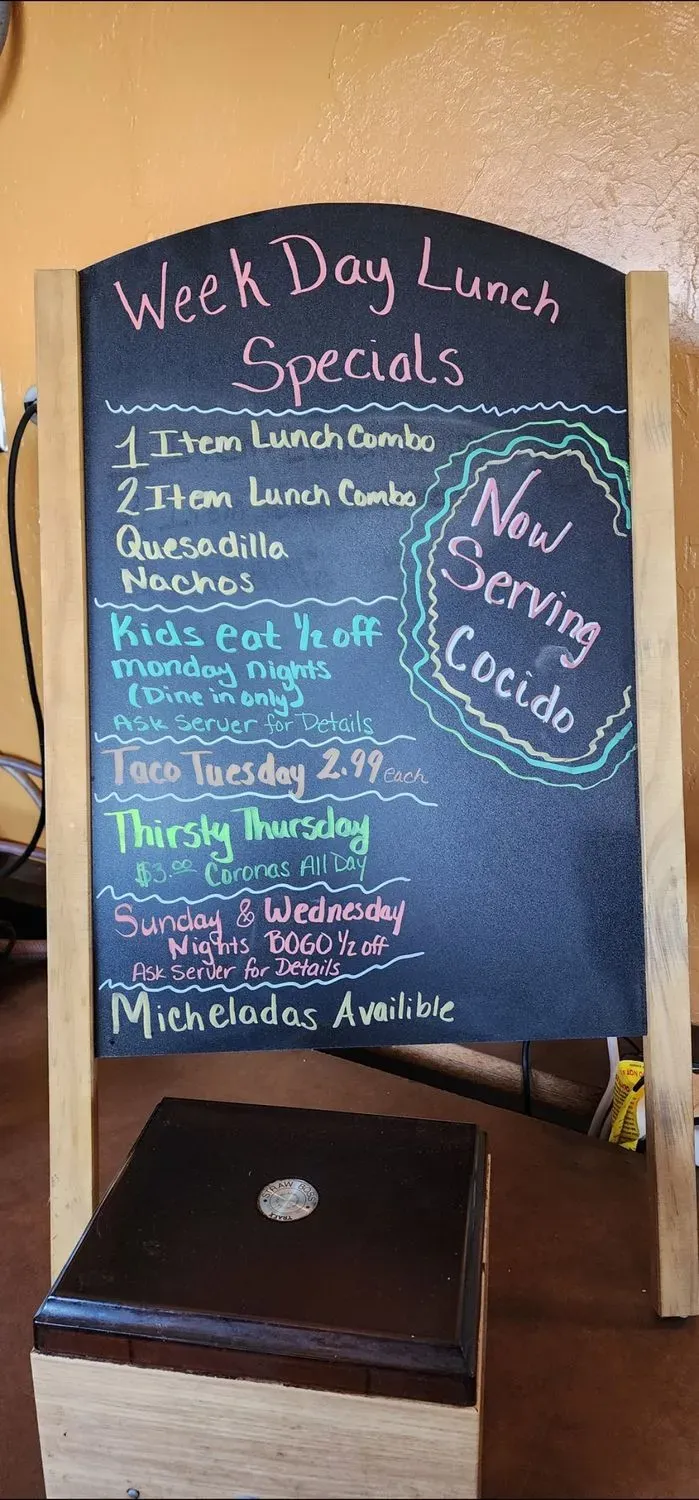 Week Day Lunch
Specials
1 Item Lunch Combo
2 Item Lunch Combo
Quesadilla
Nachos
Now
Serving
Cocido
Kids eat 1/2 off
monday nights
(Dine in only)
Ask Server for Details
Taco Tuesday 2.99 each
Thirsty Thursday
$3.00 Coronas All Day
Sunday & Wednesday
Nights BOGO 1/2 off
Ask Server for Details
Micheladas Availible
STRAW BOSS